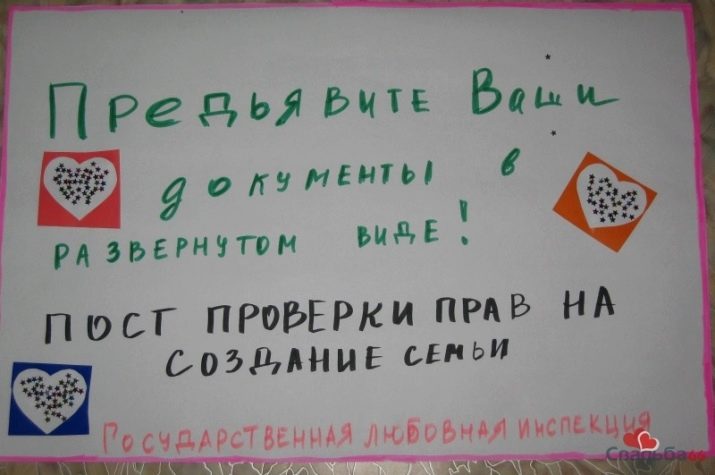 Предьявите Ваши
документы в
развернутом виде!
ПОСТ ПРОВЕРКИ ПРАВ НА
СОЗДАНИЕ СЕМЬИ
Государственная любовная инспекция
Свадьба66